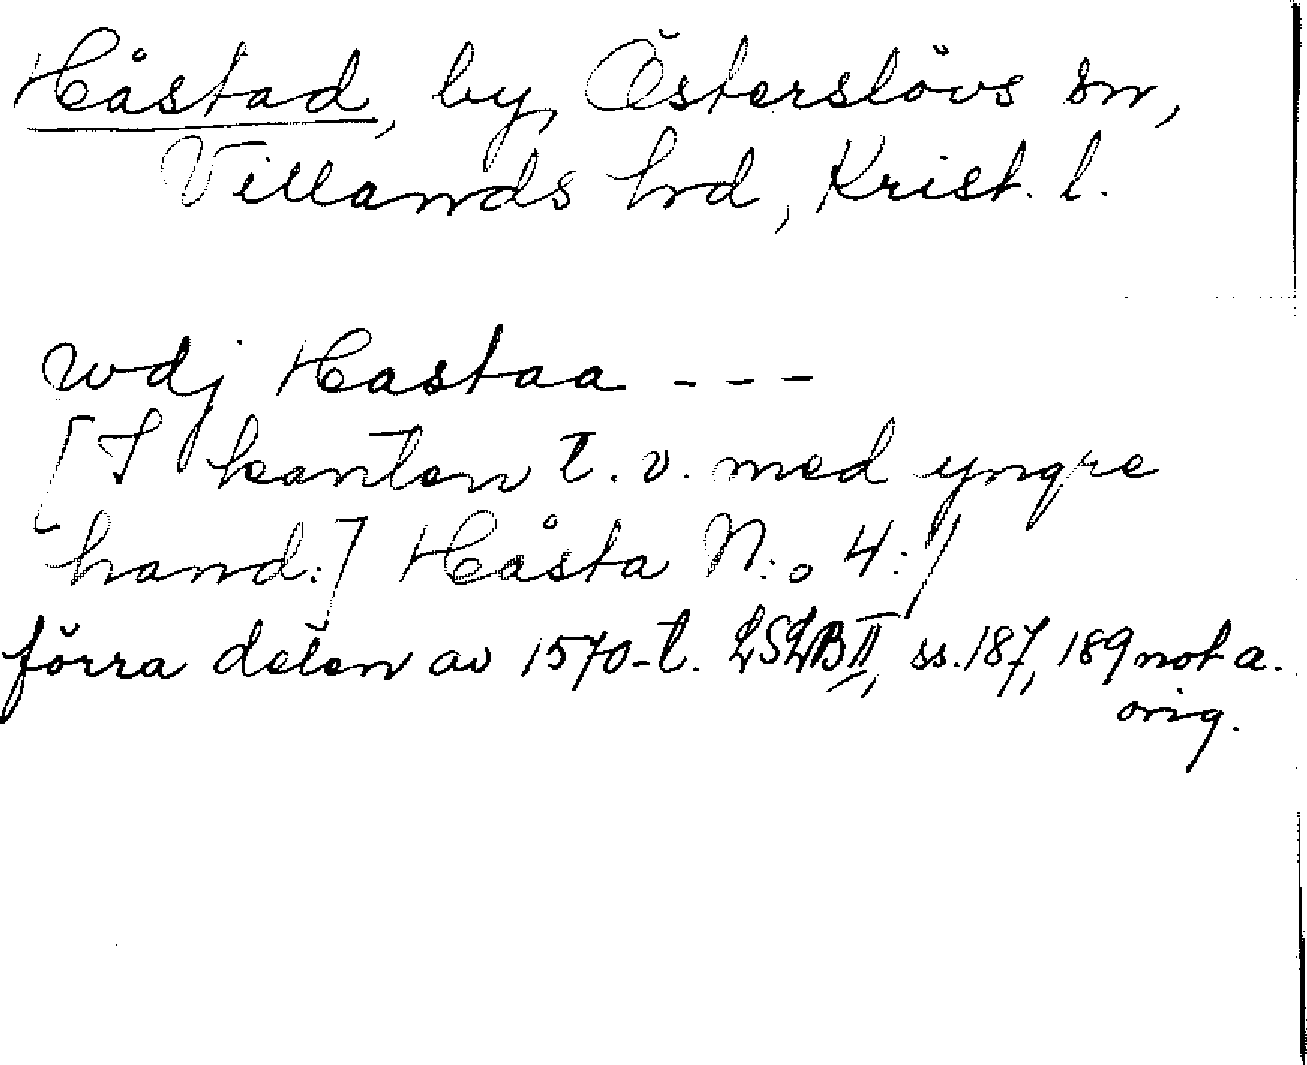 Håstad, by, Österslövs sn,
Villands hd, Krist. l.
wdj Hastaa - - -
[I kanten t.v. med yngre
hand:] Håsta N:o 4:/
förra delen av 1570-t. LSLB II, ss. 187, 189 not a.
orig.